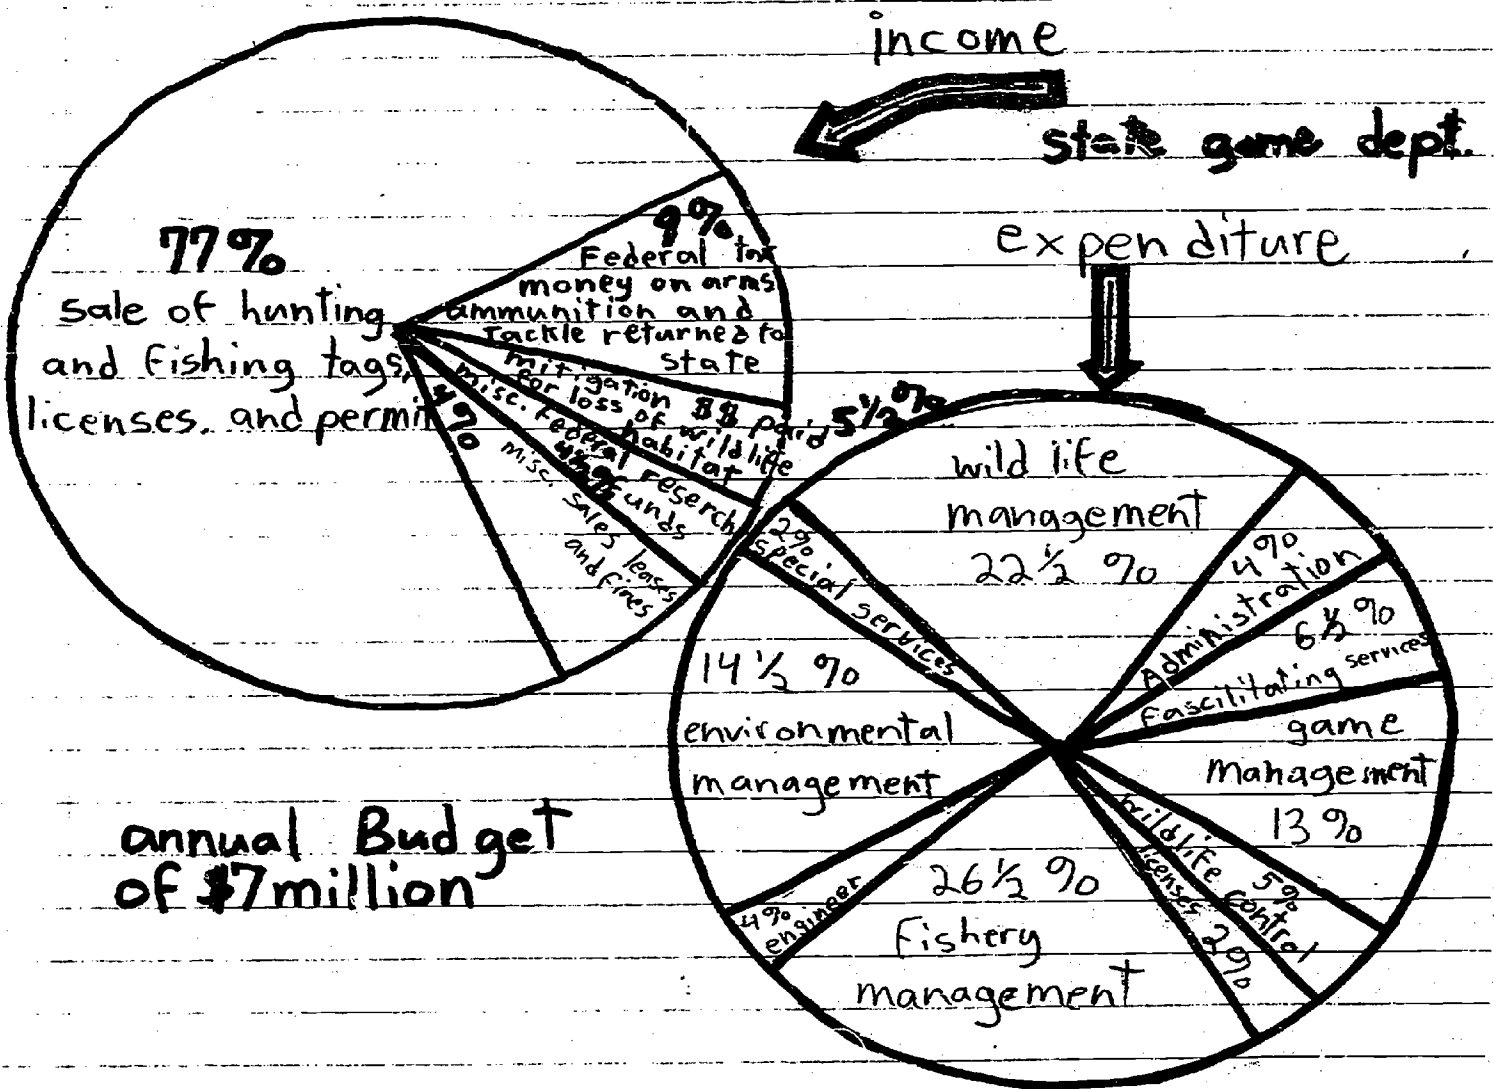 income
state game dept.
expenditure
77%
sale of hunting
and fishing tags,
licenses. and permit
9%
Federal tax
money on arms
ammunition and
tackle returned to
state
mitigation $$ paid 5 1/2 %
for loss of wildlife
habitat
misc. Federal reserch
funds
4%
misc. sales leases
and fines
4%
wild life
management
22 1/2 %
4%
Administration
6 1/2 %
Fascilitating services
game
management
13%
5%
wildlife control
licenses 2%
26 1/2 %
Fishery
management
4%
engineer
14 1/2 %
environmental
management
2%
special services
annual Budget
of $7 million